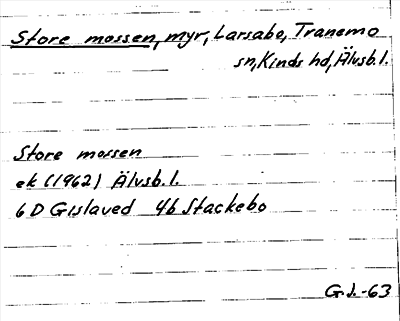 Store mossen, myr, Larsabo, Tranemo
sn, Kinds hd, Älvsb. l.
Store mossen
ek (1962) Älvsb. l.
6 D Gislaved 4b Stackebo
G. J. -63